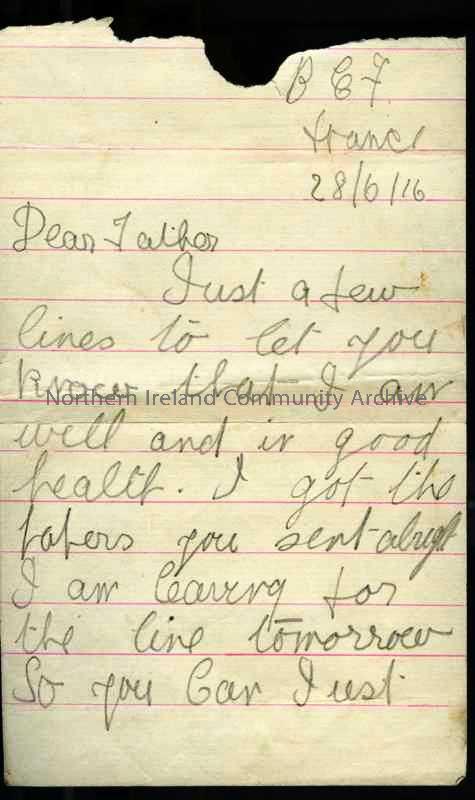 B E F
France
28/6/16
Dear Father
Just a few
lines to let you
know that I am
Northern Ireland Community Archive
well and in good
health. I got the
papers you sent alright
I am leaving for
the line tomorrow
So you Can Just